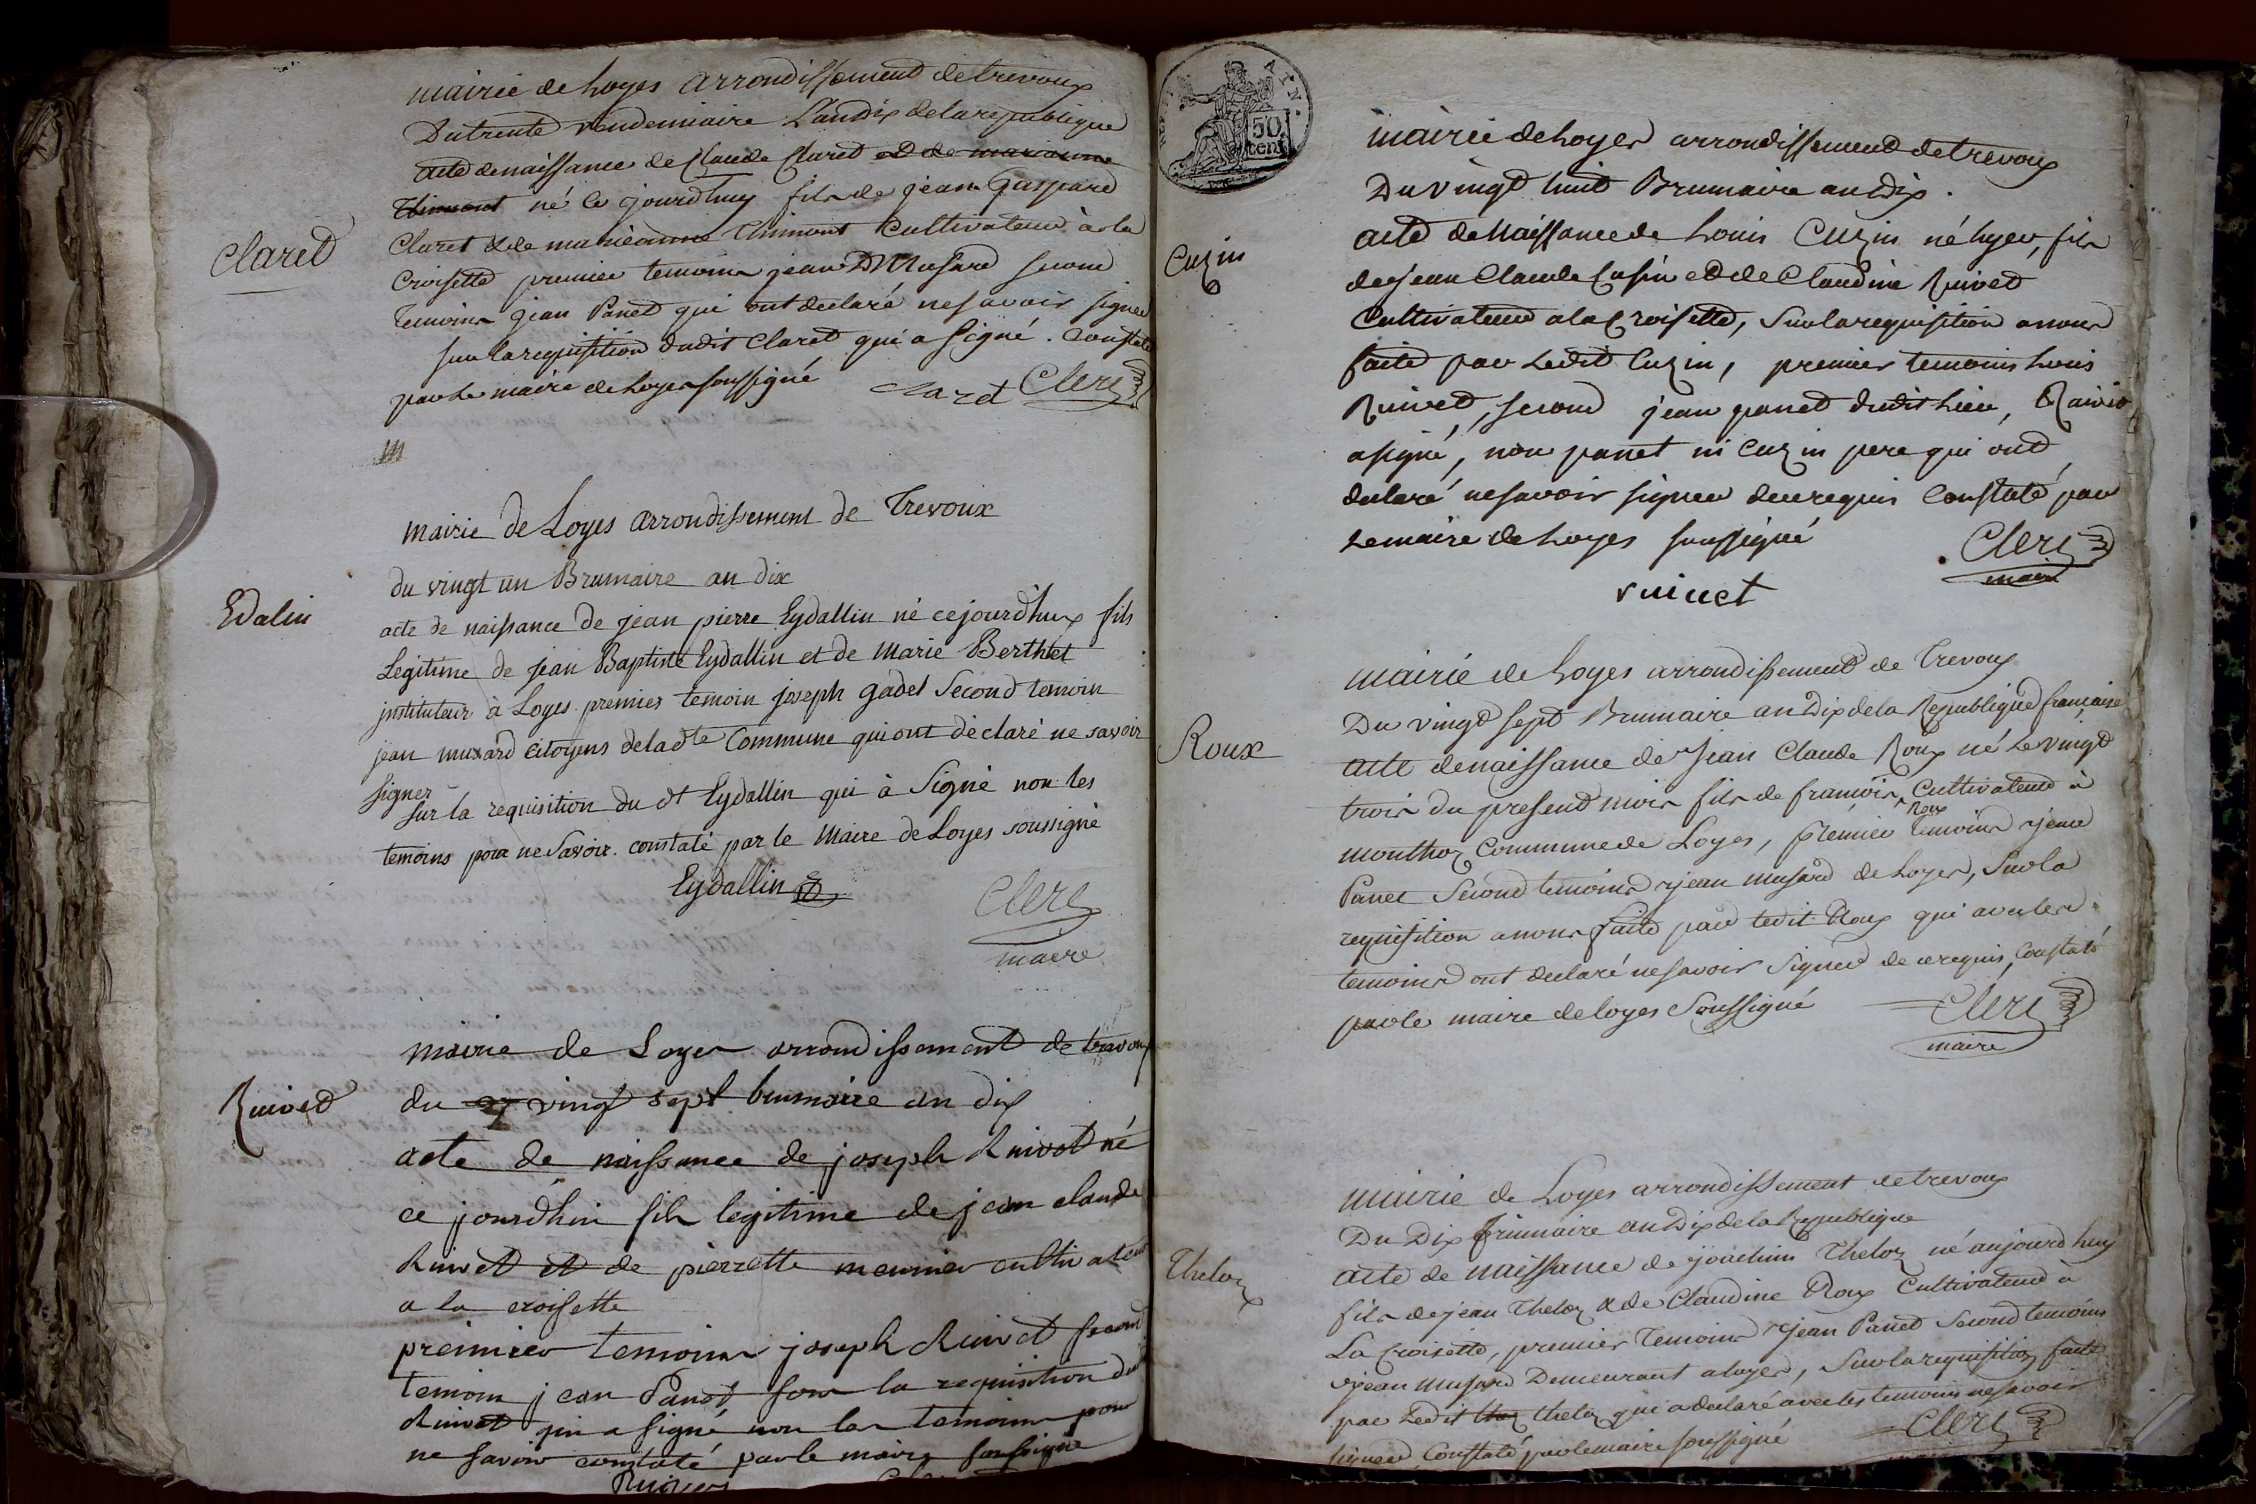 mairie de Loyes arrondissement de trevoux
Du trente vendemiaire L'an dix de la republique
acte de naissance de Claude Claret et de marianne
Thimont né ce jourd'huy fils de jean Gaspard
Claret
Claret & de marieanne Thimont Cultivateur à la
Croisette premier temoins jean Musard second
temoins jean Panet qui ont declaré ne savoir signer
sur la requisition dudit Claret qui a signé. Constaté
par le maire de Loyes soussigné
Claret Clerc
mairie de Loyes arrondissement de Trevoux
du vingt un Brumaire an dix
Edalin
acte de naissance de jean pierre Eydallin né cejourd'huy fils
Legitime de jean Baptiste Eydallin et de Marie Berthet
jnstituteur à Loyes premier temoin joseph gadet Second temoin
jean musard citoyens de la dte Commune qui ont déclaré ne savoir
signer
sur la requisition du dt Eydallin qui à Signé non les
temoins pour ne Savoir. constaté par le Maire de Loyes soussigné
Eydallin
Clerc
maire
mairie de Loyes arrondissement de trevoux
Ruivet
du 27 vingt sept brumaire an dix
acte de naissance de joseph Ruivet né
ce jourdhui fils legitime de jean claude
Ruivet et de pierrette meunier cultivateur
a la croisette
premier temoins joseph Ruivet second
temoin jean Panet sur la requisition du
Ruivet qui a signé non les temoins pour
ne savoir constaté par le maire soussigné
Ruivet
50
cent
mairie de Loyes arrondissement de trevoux
Du vingt huit Brumaire an dix.
Cuzin
acte de Naissance de Louis Cuzin né hyer, fils
de jean Claude Cusin et de Claudine Ruivet
Cultivateur a la Croisette, sur la requisition a nous
faite par Ledit Cuzin, premier temoins Louis
Ruivet, second jean panet dudit lieu, Ruivet
a signé, non panet ni Cuzin pere qui ont
declaré ne savoir signer de ce requis Constaté par
Le maire de Loyes soussigné
Clerc
maire
ruivet
mairie de Loyes arrondissement de Trevoux
Du vingt sept Brumaire an Dix de la Republique française
Roux
acte de naissance de Jean Claude Roux né le vingt
trois du present mois fils de francois Cultivateur à
Roux
monthoz Commune de Loyes, premier temoins jean
Panet Second temoins jean musard de Loyes, Sur la
requisition a nous faite par ledit Roux qui avec les
temoins ont declaré ne savoir Signer de ce requis, Constaté
par le maire de loyes Soussigné
Clerc
maire
mairie de Loyes arrondissement de trevoux
Du Dix frimaire an Dix de la Republique
Theloz
acte de naissance de joachim Theloz né aujourd'huy
fils de jean Theloz & de Claudine Roux Cultivateur à
La Croisette, premier Temoins jean Panet Second temoins
jean musard Demeurant a loyes, Sur la requisition faite
par Ledit theloz qui a declaré avec les temoins ne savoir
signer Constaté par le maire soussigné
Clerc